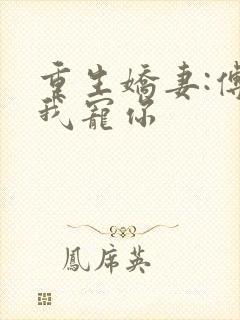 重生嬌妻:傅
我寵你
鳳席英